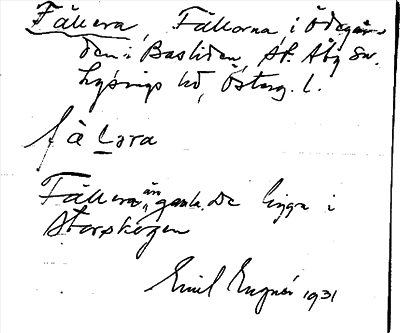 Fällorna, Fällorna i Ödegår-
den i Bastiden, St. Åby sn.
Lysings hd, Österg. l.
fä̀lʌra
Fällorna är gamla. De ligga i
Storskogen
Emil 1931